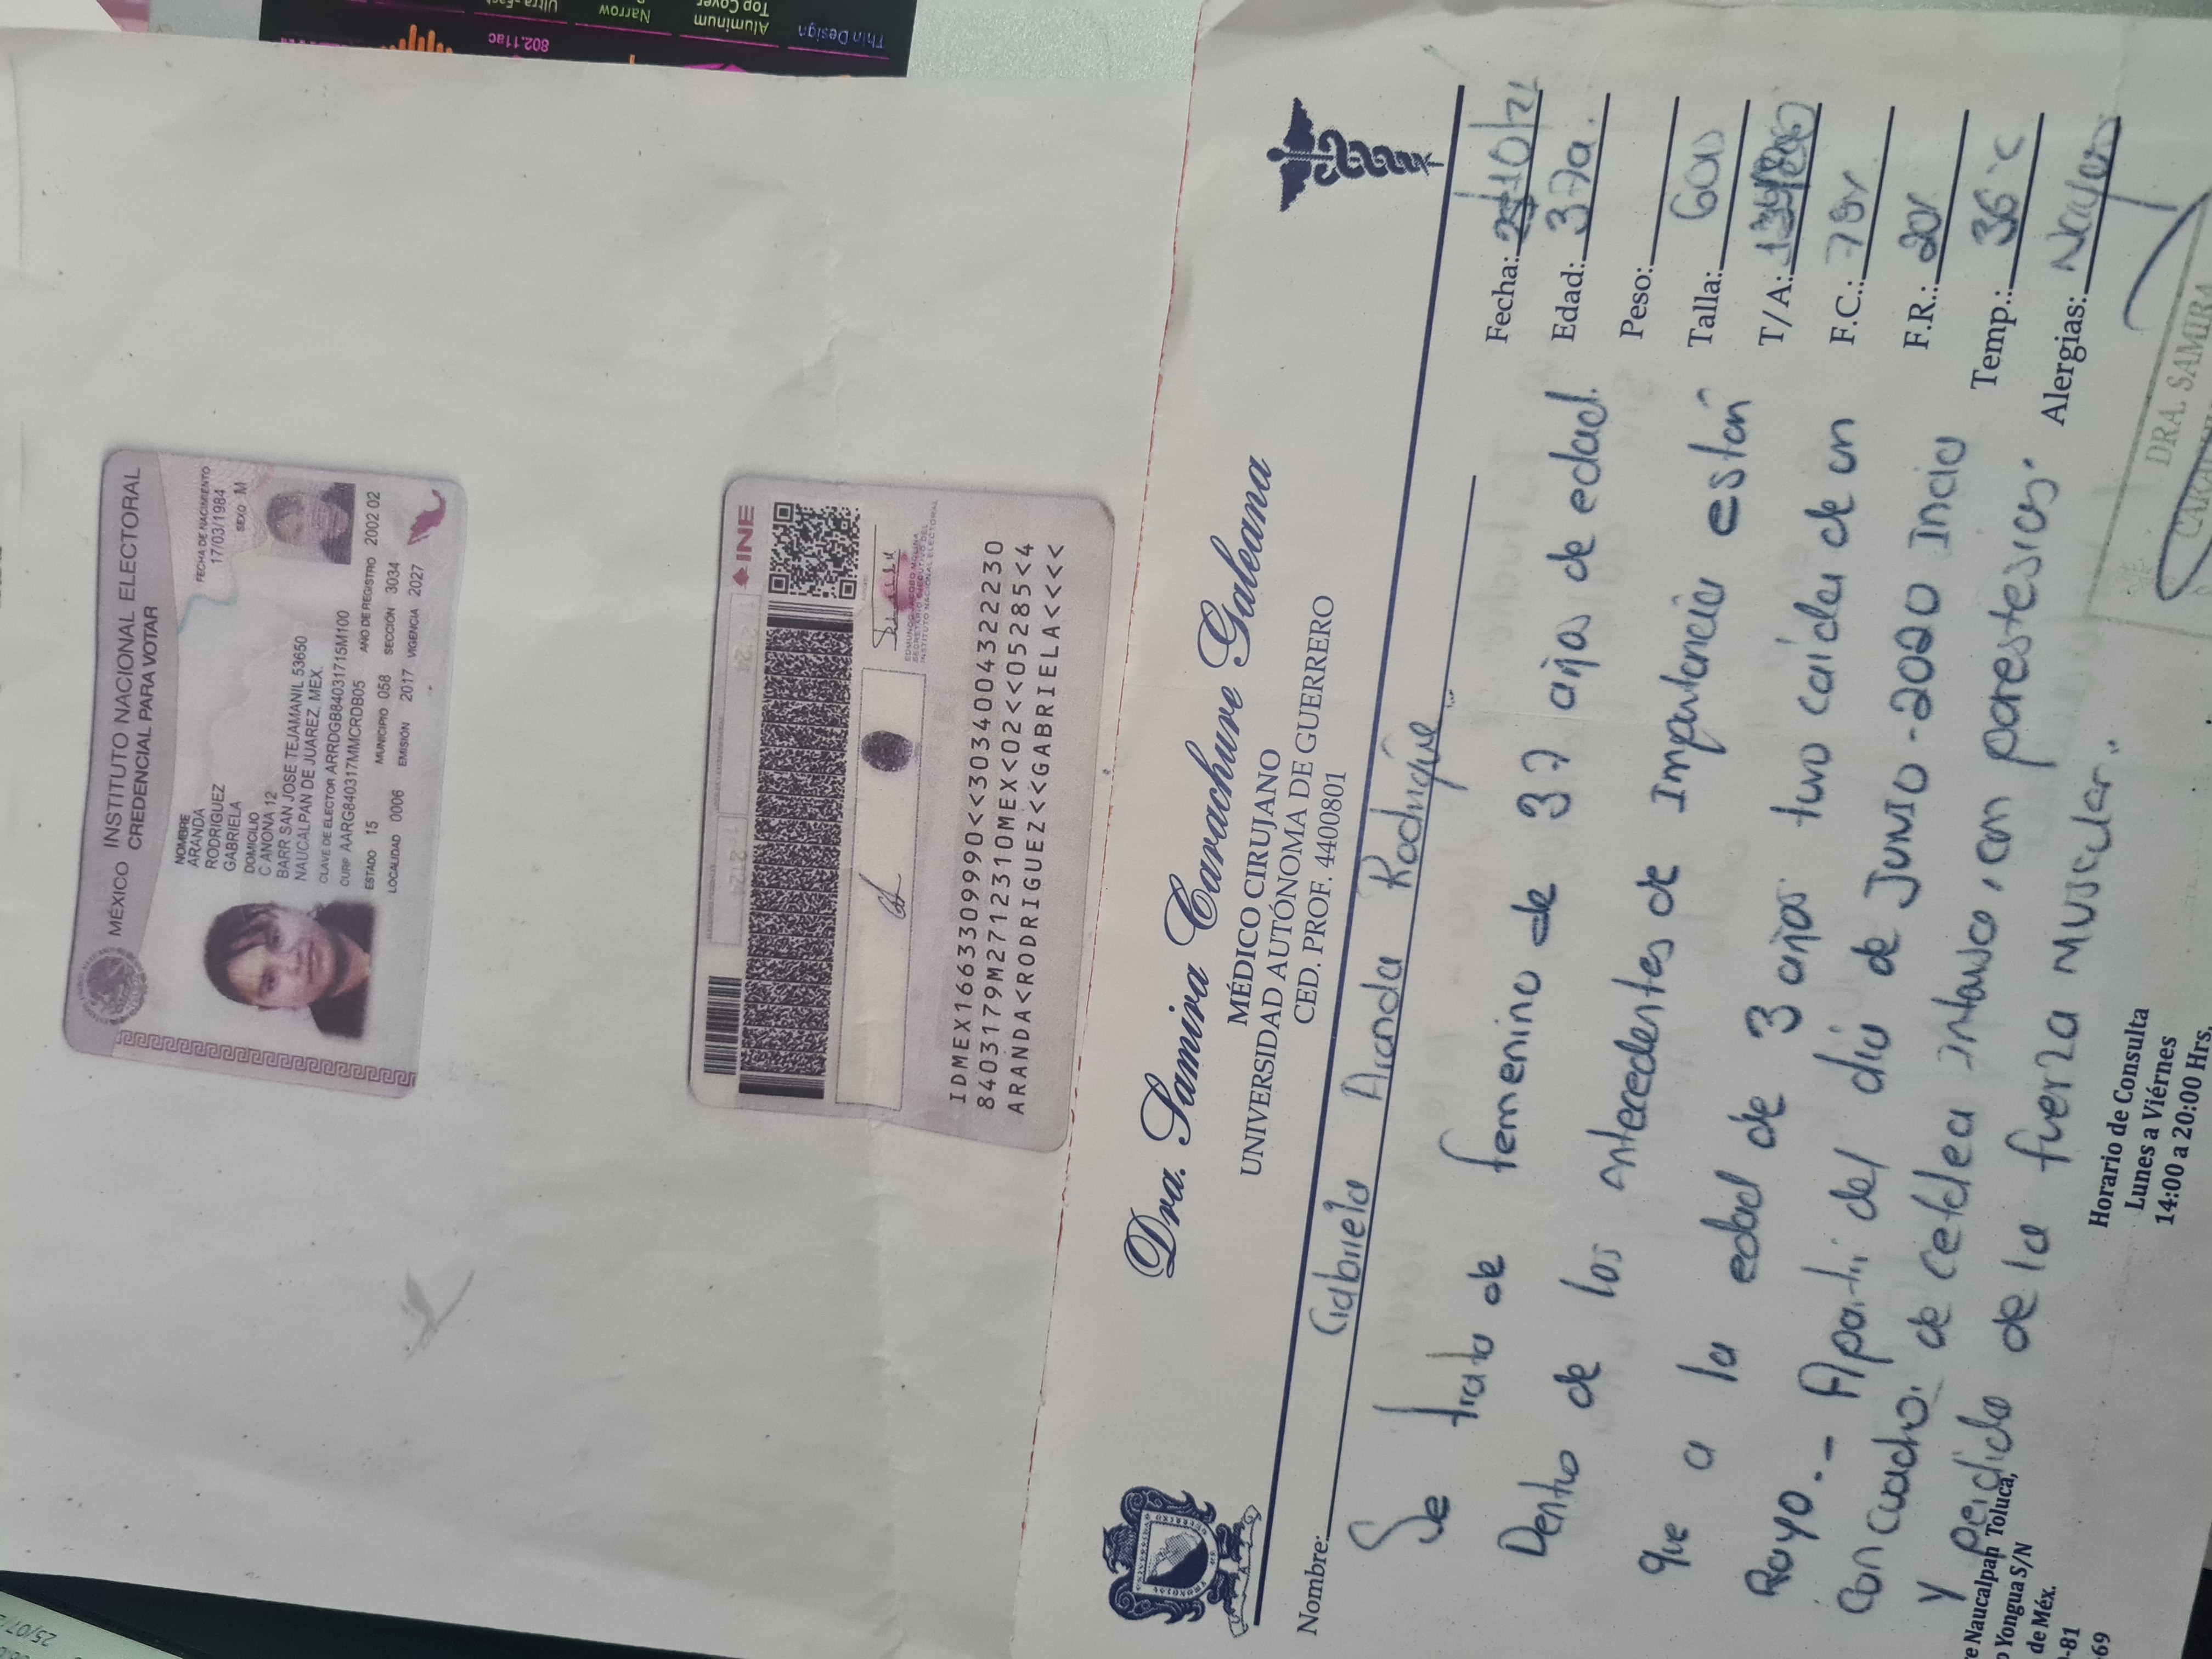 Thin Design
Aluminum
Top Cover
Narrow
802.11ac
MÉXICO INSTITUTO NACIONAL ELECTORAL
CREDENCIAL PARA VOTAR
NOMBRE
ARANDA
RODRIGUEZ
GABRIELA
FECHA DE NACIMIENTO
17/03/1984
SEXO M
DOMICILIO
C ANONA 12
BARR SAN JOSE TEJAMANIL 53650
NAUCALPAN DE JUAREZ, MEX.
CLAVE DE ELECTOR ARRDGB84031715M100
CURP AARG840317MMCRDB05 AÑO DE REGISTRO 2002 02
ESTADO 15 MUNICIPIO 058 SECCIÓN 3034
LOCALIDAD 0006 EMISIÓN 2017 VIGENCIA 2027
INE
EDMUNDO JACOBO MOLINA
SECRETARIO EJECUTIVO DEL
INSTITUTO NACIONAL ELECTORAL
IDMEX1663309990<<3034004322230
8403179M2712310MEX<02<<05285<4
ARANDA<RODRIGUEZ<<GABRIELA<<<<
Dra. Samira Carachure Galeana
MÉDICO CIRUJANO
UNIVERSIDAD AUTÓNOMA DE GUERRERO
CED. PROF. 4400801
Nombre: Gabriela Aranda Rodrigue
Fecha: /10/21
Edad: 37a.
Peso:
Talla: 600
T/A:
F.C.: 78x
F.R.: 20x
Temp.: 36°C
Alergias:
Se trata de femenino de 37 años de edad.
Dentro de los antecedentes de Importancia están
que a la edad de 3 años tuvo caida de un
Rayo.- Apartir del día de Junio-2020 Inicia
con cuadro. de cefalea intensa, con parestesias.
y perdida de la fuerza muscular..
DRA. SAMIRA
Horario de Consulta
Lunes a Viérnes
14:00 a 20:00 Hrs.
Naucalpan Toluca,
Yongua S/N
de Méx.
-81
69
25/07/